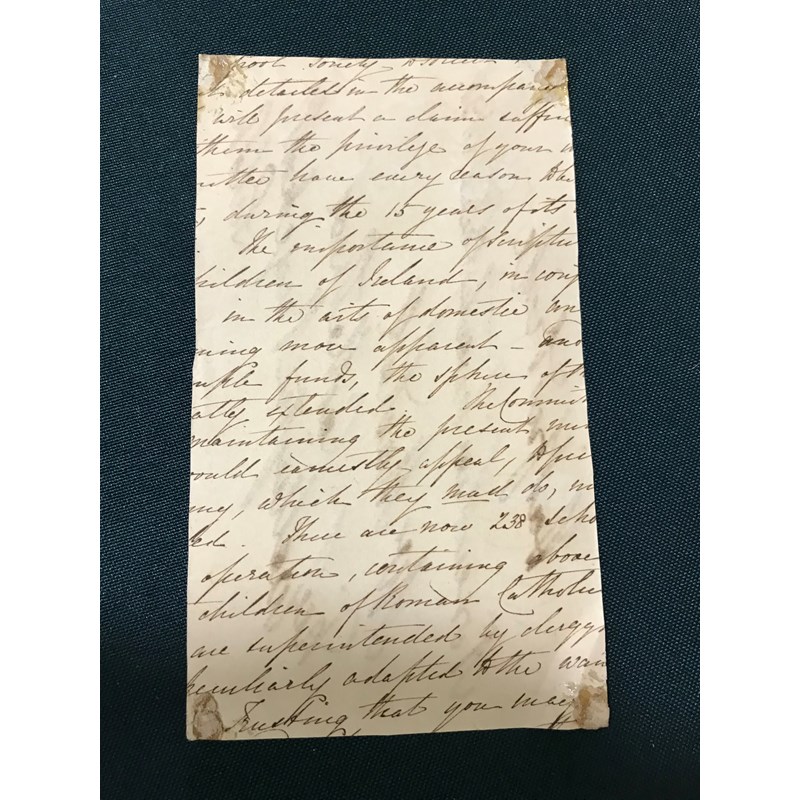 hool Society
detailed in the accompan
will present a claim suffic
them the privilege of your
mittee have every reason to be
, during the 15 years of its
. The importance of Scriptu
hildren of Ireland, in conj
in the arts of domestic an
ming more apparent - and
mple funds, the sphere of
atly extended. The Commit
maintaining the present
would earnestly appeal, to
ing, which they must do,
ed. There are now 238 scho
operation, containing above
children of Roman Catholic
are superintended by clergy
peculiarly adapted to the wan
Trusting that you may